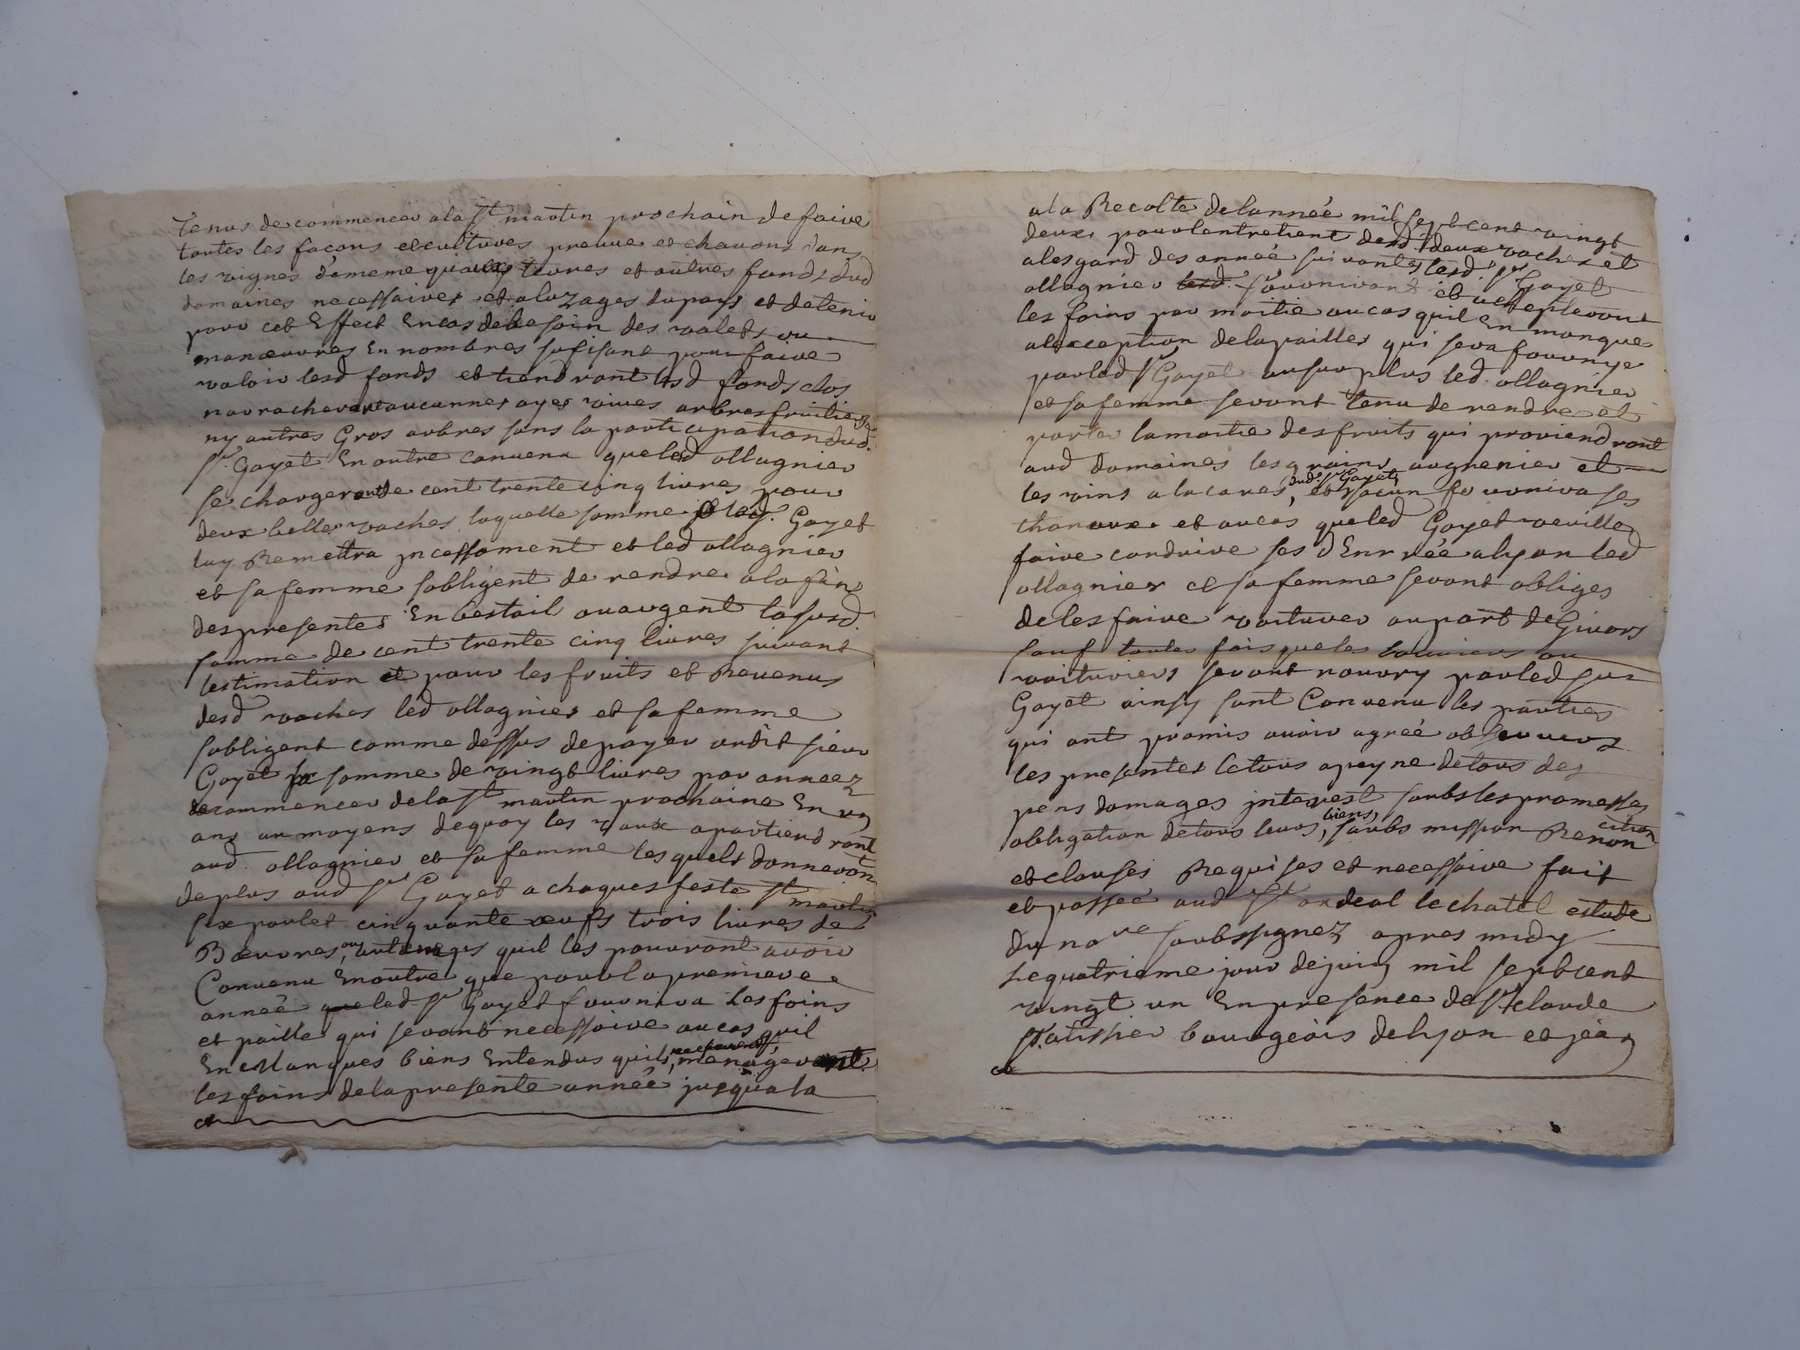 tenus de commencer a la St martin prochain de faire
toutes les façons et cultures preuue et chauons dans
les vignes de meme qu'aux terres et autres fonds dud
domaines necessaires et a luzages du pays et de tenir
pour cet Effect En cas de besoin des valets ou
manœuvres En nombres sufisant pour faire
valoir lesd fonds et tiendront lesd fonds clos
n'arracheront aucunnes ayes vives arbres fruitiers
ny autres Gros arbres sans la participation dud.
Sr. Gayet En outre convenu que led ollagnier
se chargeront de cent trente cinq livres pour
deux belles vaches laquelle somme led. Gayet
luy Remettra incessament et led ollagnier
et sa femme sobligent de rendre a la fin
des presentes En bestail ou argent la susd.
somme de cent trente cinq livres suivant
lestimation et pour les fruits et Revenus
desd vaches led ollagnier et sa femme
sobligent comme dessus de payer audit sieur
Gayet la somme de vingt livres par annéez
a commencer de la St martin prochaine En un
ans au moyens de quoy les vaux apartiendront
aud. ollagnier et sa femme lesquels donneront
de plus aud Sr Gayet a chaques feste St martin
six poulet cinquante œufs trois livres de
Bœurres, ou autemps quil les pourront avoir
Convenu En outre que pour la premiere
année que led Sr Gayet fournira les foins
et paille qui seront necessaire au cas quil
En Manques biens Entendus quils menageront
les foins de la presente année jusqu'a la
a la Recolte de lannée mil sept cent vingt
deux pour lentretient desd deux vaches et
a lesgard des année suivantes lesd. Sr Gayet
ollagnier fourniront et
les foins par moitie au cas quil En manque
a lexception de la pailles qui sera fournye
par led Sr Gayet au surplus led. ollagnier
et sa femme seront tenu de rendre et
porter la moitie des fruits qui proviendront
aud domaines les grains au grenier et
les vins a la caves dud. Sr Gayet, et chacun fournira ses
thonaux et au cas que led Gayet veuille
faire conduire ses dEnrrée a lyon led
ollagnier et sa femme seront obliges
de les faire voiturer au port de Givors
sauf toutes fois que les bouviers ou
voituriers seront nourry par led sr
Gayet ainsy sont Convenu les parties
qui ont promis avoir agréé observers
les presentes le tous a peyne de tous des
pens domages interest soubs les promesses
obligation de tous leurs biens, soubs mission Renon
cition
et clauses Requises et necessaire fait
et passée aud St andeol le chatel estude
du nore soubssignez apres midy
Le quatrieme jour de juin mil sept cent
vingt un En presence de Sr. claude
Patissier bourgeois de lyon et jean